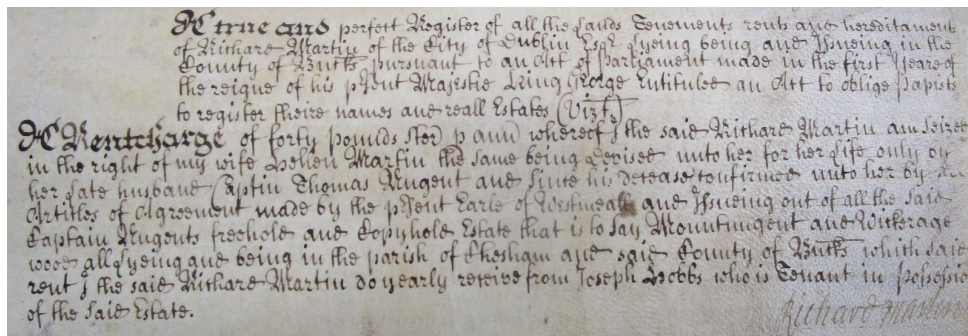 A true and perfect Register of all the Lands Tenements rents and hereditaments
of Richard Martin of the City of Dublin Esqr. Lyeing being and Issueing in the
County of Bucks pursuant to an Act of Parliament made in the first Yeare of
the reigne of his p'sent Majestie King George Entituled an Act to oblige papists
to register theire names and reall Estates (Vizt.)
A Rentcharge of forty pounds sterl p ann whereof I the said Richard Martin am Seized
in the right of my wife Hellen Martin the same being devised unto her for her Life only by
her late husband Captin Thomas Nugent and Since his decease confirmed unto her by
Articles of Agreement made by the p'sent Earle of Westmeath and Issueing out of all the said
Captain Nugents freehold and Copyhold Estate that is to say Mountnugent and Vickerage
wood all Lyeing and being in the parish of Chesham and said County of Bucks which said
rent I the said Richard Martin do yearly receive from Joseph Hobbs who is Tenant in possessio
of the said Estate.
Richard Martin